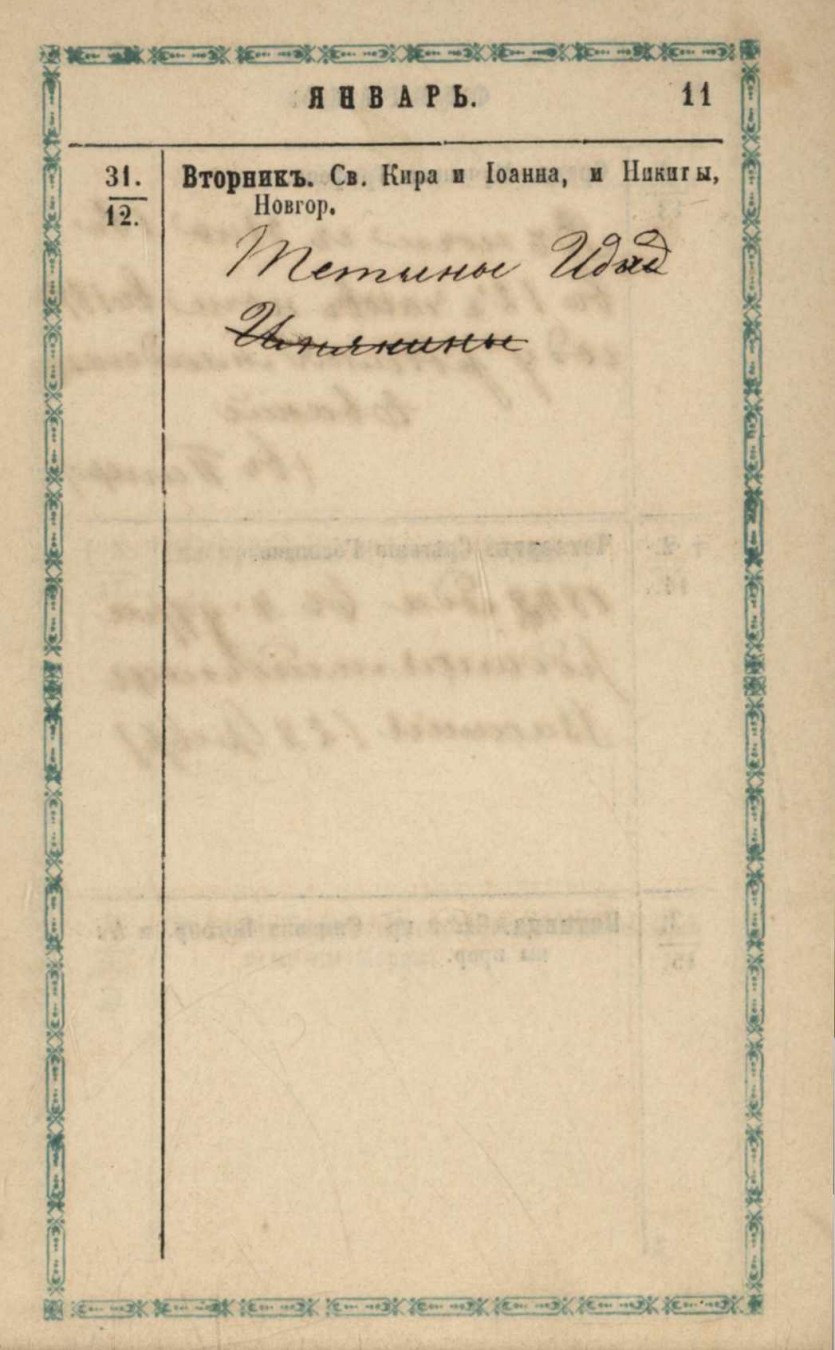 ЯНВАРЬ. 11
31. Вторникъ. Св. Кира и Іоанна, и Никиты,
12. Новгор.
Тетины